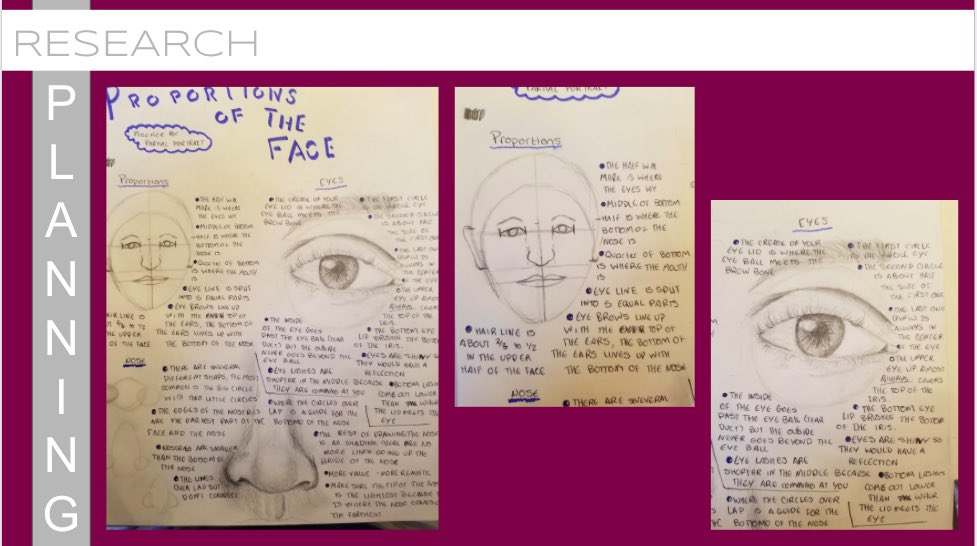 RESEARCH
PLANNING
PROPORTIONS
OF THE
FACE
PARTIAL PORTRAIT
Proportions
THE HALF WAY
MARK IS WHERE
THE EYES LAY
MIDDLE OF BOTTOM
HALF IS WHERE THE
BOTTOM OF THE
NOSE IS
QUARTER OF BOTTOM
IS WHERE THE MOUTH
IS
EYE LINE IS SPLIT
INTO 5 EQUAL PARTS
EYE BROWS LINE UP
WITH THE TOP OF
THE EARS, THE BOTTOM OF
THE EARS LINES UP WITH
THE BOTTOM OF THE NOSE
HAIR LINE IS
IN THE UPPER
HALF OF THE FACE
EYES
THE CREASE OF YOUR
EYE LID IS WHERE THE
EYE BALL MEETS THE
BROW BONE
THE FIRST CIRCLE
IS THE WHOLE EYE
THE SECOND CIRCLE
IS ABOUT HALF
THE SIZE OF
THE FIRST ONE
THE LAST ONE
(PUPIL) IS
ALWAYS IN
THE CENTER
OF THE EYE
THE UPPER
EYE LID ALMOST
ALWAYS COVERS
THE TOP OF THE
IRIS
THE INSIDE
OF THE EYE GOES
PAST THE EYE BALL (TEAR
DUCT) BUT THE OUTSIDE
NEVER GOES BEYOND THE
EYE BALL
THE BOTTOM EYE
LID BRUSHES THE BOTTOM
OF THE IRIS.
EYES ARE SHINY SO
THEY WOULD HAVE A
REFLECTION
EYE LASHES ARE
SHORTER IN THE MIDDLE BECAUSE
THEY ARE COMMING AT YOU
BOTTOM LASHES
COME OUT LOWER
THAN WHER
THE LID MEETS THE
EYE
NOSE
THERE ARE SNEVERAL
DIFFERENT SHAPS, THE MOST
COMMON IS THE BIG CIRCLE
WITH TWO LITTLE CIRCLES
THE EDGES OF THE NOSTRILS
ARE THE DARKEST PART OF THE
FACE AND THE NOSE
NOSTRILS ARE SMALLER
THAN THE BOTTOM OF
THE NOSE
THE LINES
OVER LAP BUT
DON'T CONNECT
WHERE THE CIRCLES OVER
LAP IS A GUIDE FOR THE
BOTTOMO OF THE NOSE
THE REST OF DRAWING THE NOSE
IS SHADING THERE ARE NO
MORE LINES GOING UP THE
BRIDGE OF THE NOSE
MORE VALUE = MORE REALISTIC
MAKE SURE THE TIP OF THE NOSE
IS THE LIGHTEST BECAUSE
IS WHERE THE NOSE COMES
THE FARTHEST
PARTIAL PORTRAIT
Proportions
THE HALF WAY
MARK IS WHERE
THE EYES LAY
MIDDLE OF BOTTOM
HALF IS WHERE THE
BOTTOM OF THE
NOSE IS
QUARTER OF BOTTOM
IS WHERE THE MOUTH
IS
EYE LINE IS SPLIT
INTO 5 EQUAL PARTS
EYE BROWS LINE UP
WITH THE TOP OF
THE EARS, THE BOTTOM OF
THE EARS LINES UP WITH
THE BOTTOM OF THE NOSE
HAIR LINE IS
ABOUT 2/3 to 1/2
IN THE UPPER
HALF OF THE FACE
NOSE
THERE ARE SNEVERAL
EYES
THE CREASE OF YOUR
EYE LID IS WHERE THE
EYE BALL MEETS THE
BROW BONE
THE FIRST CIRCLE
IS THE WHOLE EYE
THE SECOND CIRCLE
IS ABOUT HALF
THE SIZE OF
THE FIRST ONE
THE LAST ONE
(PUPIL) IS
ALWAYS IN
THE CENTER
OF THE EYE
THE UPPER
EYE LID ALMOST
ALWAYS COVERS
THE TOP OF THE
IRIS.
THE INSIDE
OF THE EYE GOES
PAST THE EYE BALL (TEAR
DUCT) BUT THE OUTSIDE
NEVER GOES BEYOND THE
EYE BALL
THE BOTTOM EYE
LID BRUSHES THE BOTTOM
OF THE IRIS.
EYES ARE SHINY SO
THEY WOULD HAVE A
REFLECTION
EYE LASHES ARE
SHORTER IN THE MIDDLE BECAUSE
THEY ARE COMMING AT YOU
BOTTOM LASHES
COME OUT LOWER
THAN WHER
THE LID MEETS THE
EYE
WHERE THE CIRCLES OVER
LAP IS A GUIDE FOR THE
BOTTOMO OF THE NOSE